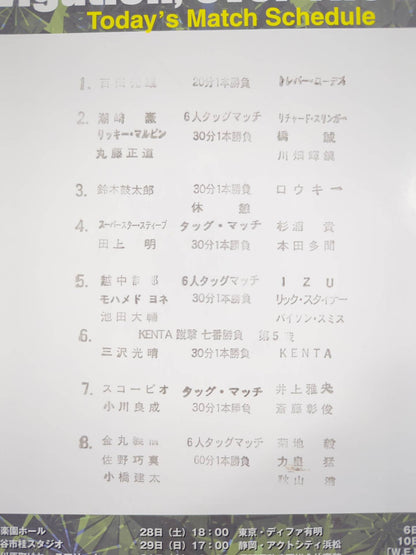 Today's Match Schedule
1. 20分1本勝負
2. 潮﨑 豪 6人タッグマッチ リチャード・スリンガー
リッキー・マルビン 30分1本勝負 橋 誠
丸藤正道 川畑輝鎮
3. 鈴木鼓太郎 30分1本勝負 ロウキー
休憩
4. スーパースター・スティーブ タッグ・マッチ 杉浦 貴
田上 明 30分1本勝負 本田多聞
5. 越中詩郎 6人タッグマッチ IZU
モハメド ヨネ 30分1本勝負 リック・スタイナー
池田大輔 バイソン・スミス
6. KENTA 蹴撃 七番勝負 第5戦
三沢光晴 30分1本勝負 KENTA
7. スコーピオ タッグ・マッチ 井上雅央
小川良成 30分1本勝負 斎藤彰俊
8. 金丸義信 6人タッグマッチ 菊地 毅
佐野巧真 60分1本勝負 力皇 猛
小橋建太 秋山 準
楽園ホール 28日(土)18:00 東京・ディファ有明
谷市桂スタジオ 29日(日)17:00 静岡・アクトシティ浜松